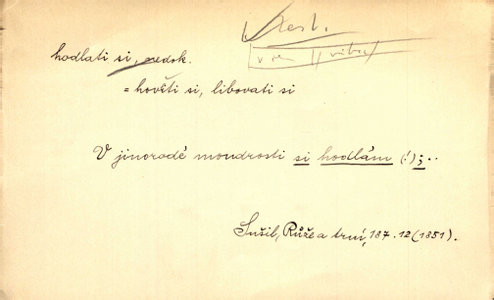 hodlati si, nedok.
= hověti si, libovati si
V jinorodé moudrosti si hodlám (!); ..
Sušil, Růže a trní, 187. 12 (1851).